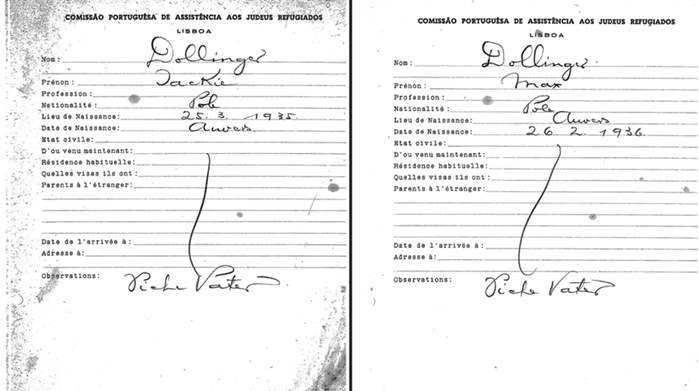 COMISSÃO PORTUGUÊSA DE ASSISTÊNCIA AOS JUDEUS REFUGIADOS
LISBOA
Nom: Dollinger
Prénon: Jackie
Profession:
Nationalité: Pole
Lieu de Naissance: 25. 3. 1935
Date de Naissance: Anvers
Etat civile:
D'ou venu maintenant:
Résidence habituelle:
Quelles visas ils ont:
Parents à l'étranger:
Date de l'arrivée à:
Adresse à:
Observations: Siehe Vater
COMISSÃO PORTUGUÊSA DE ASSISTÊNCIA AOS JUDEUS REFUGIADOS
LISBOA
Nom: Dollinger
Prénon: Max
Profession:
Nationalité: Pole
Lieu de Naissance: Anvers
Date de Naissance: 26. 2. 1936
Etat civile:
D'ou venu maintenant:
Résidence habituelle:
Quelles visas ils ont:
Parents à l'étranger:
Date de l'arrivée à:
Adresse à:
Observations: Siehe Vater